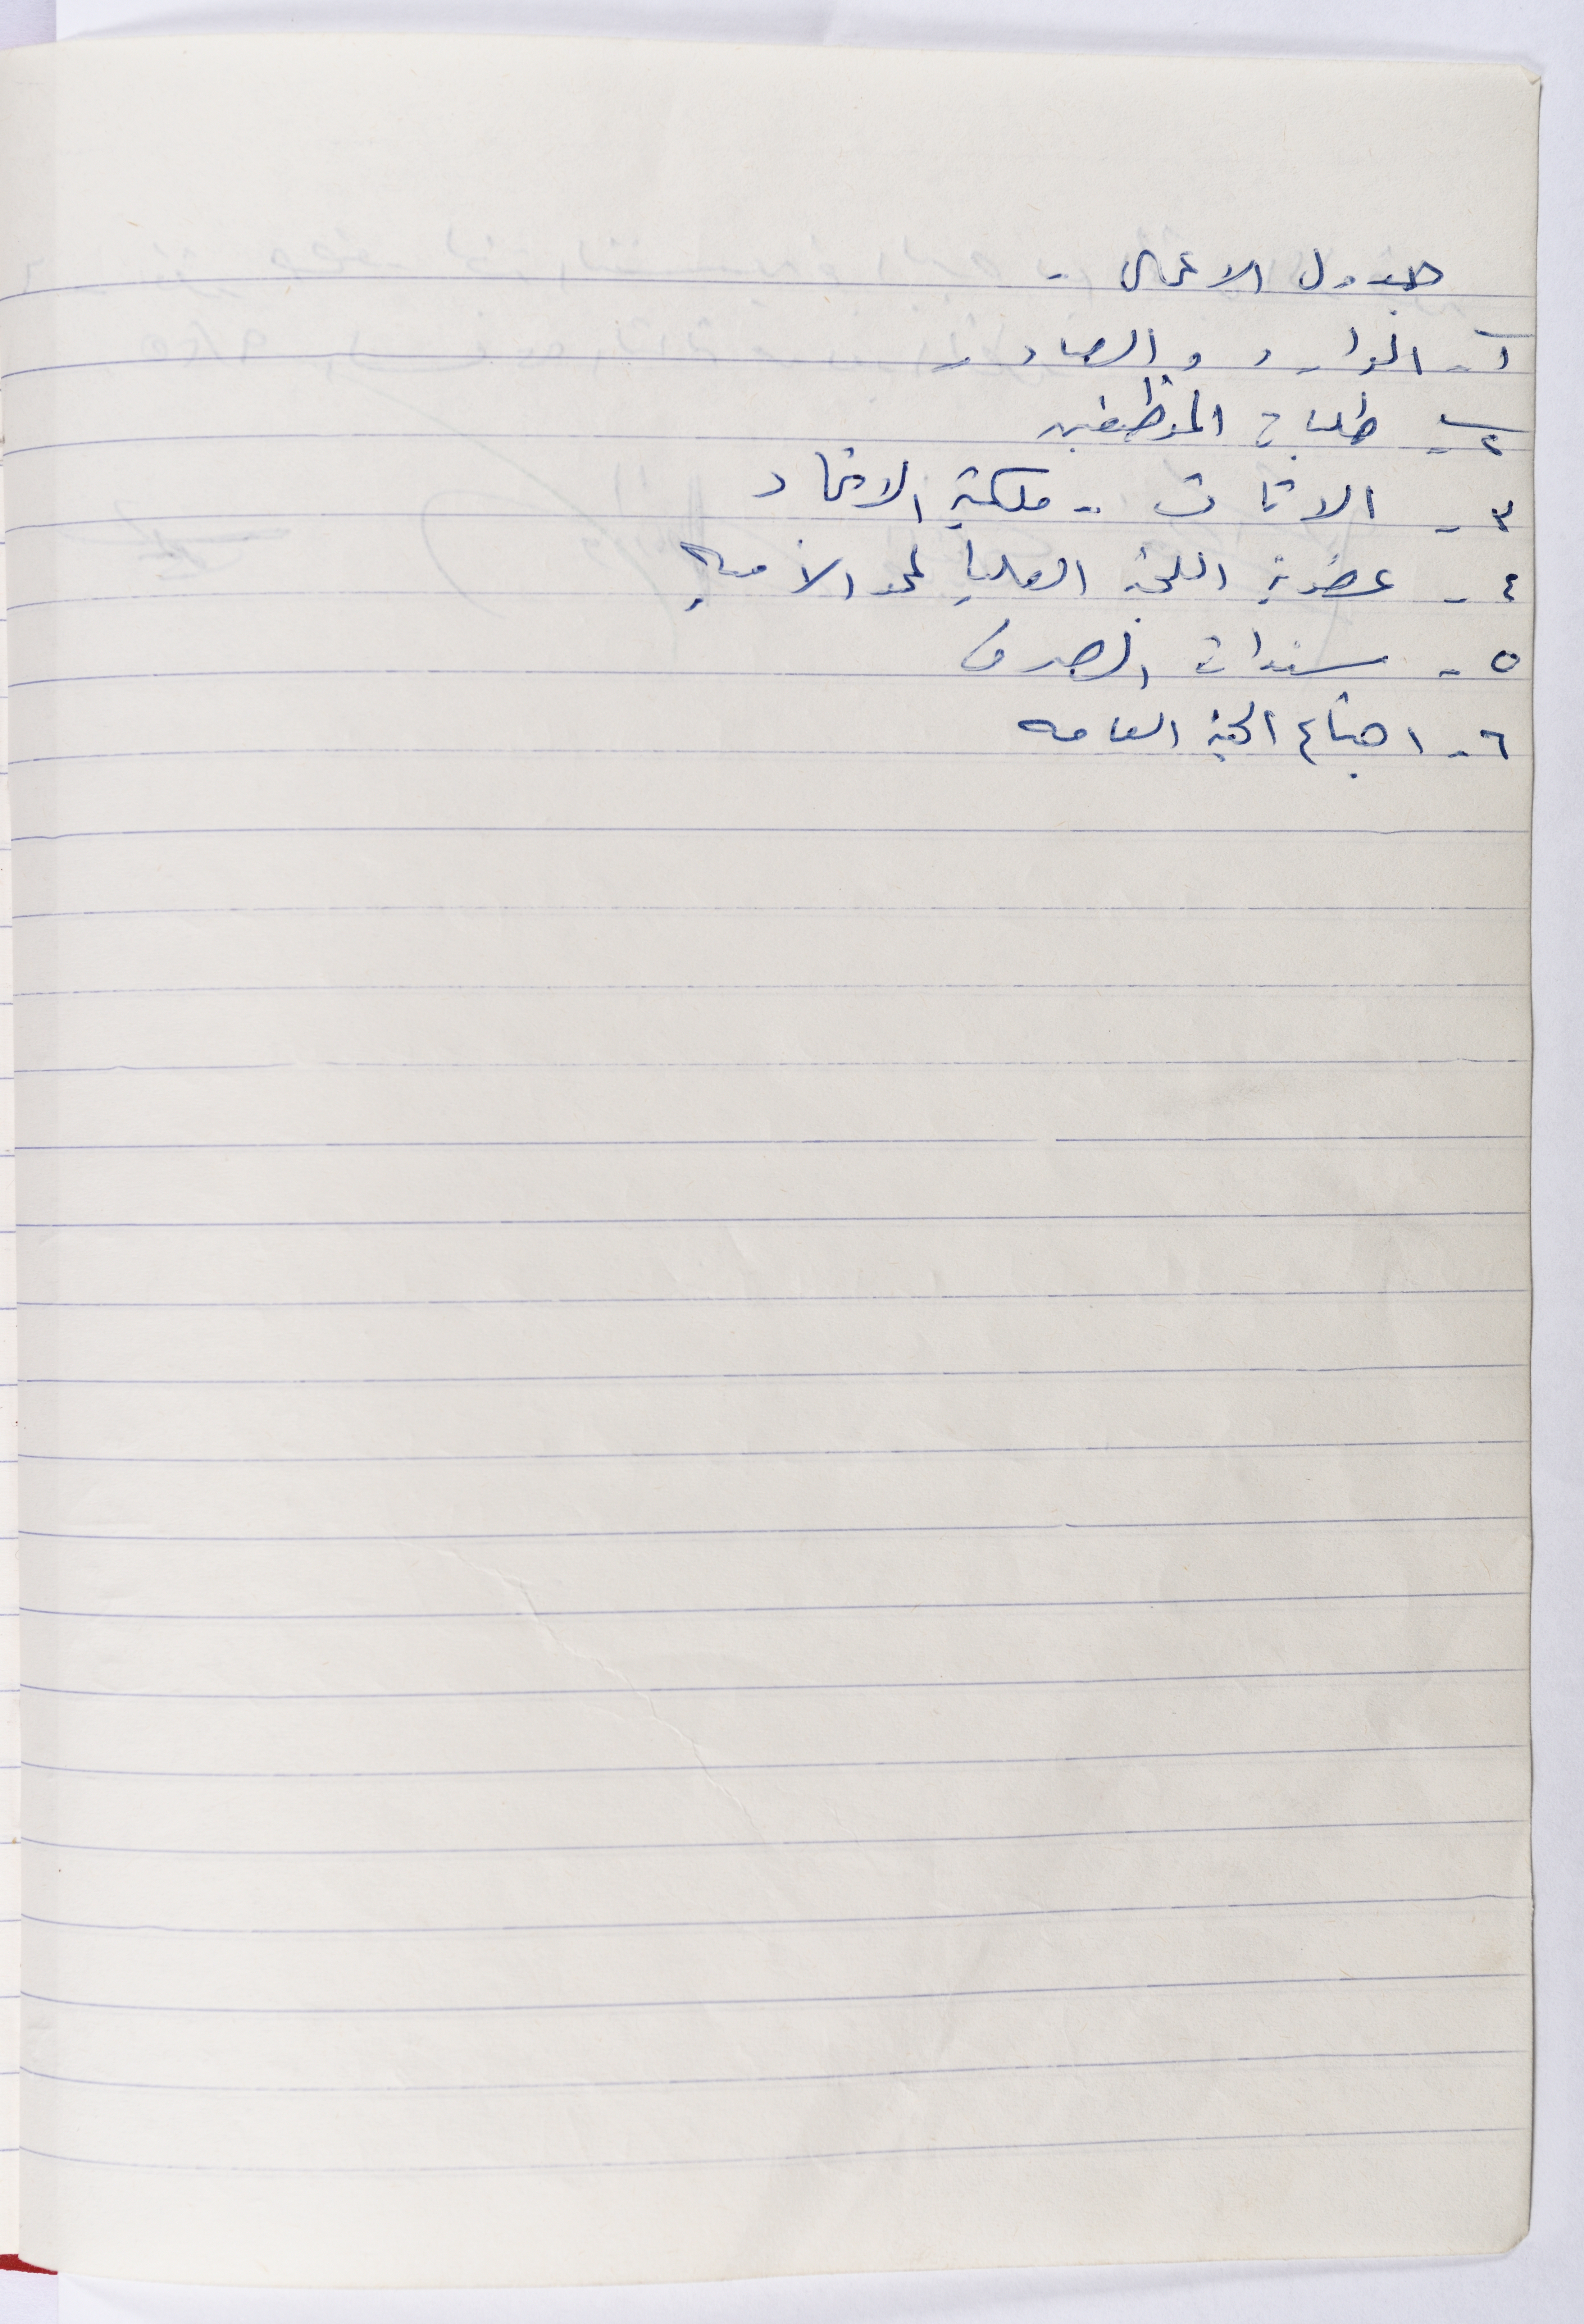 جدول الاعمال -
١- الوارد والصادر
٢- طلبات الموظفين
٣- الاثاث - ملكية الاتحاد
٤- عضوية اللجنة العليا لمحو الأميه
٥- سندات الصرف
٦- اجتماع الهيئة العامه